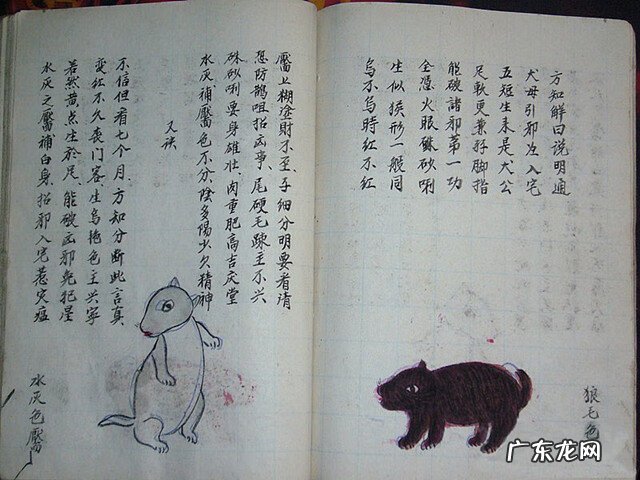 方知鮮曰说明通
犬母引邪凶入宅
五短生来是犬公
足軟更兼孖脚指
能破諸邪第一功
全憑火眼硃砂唎
生似猴形一般同
乌不乌時红不红
狼毛色
靥上糊塗財不至，子细分明要看清
忽防鹊咀招凶事，尾硬毛疎主不兴
硃砂唎要身雄壮，肉重肥高吉庆堂
水灰補靥色不分陰多陽少久精神
又诀
不信但看七个月，方知分断此言真
变红不久丧门客，生乌艳色主兴宁
若然黄点生於足，能破凶邪免犯星
水灰之靥補白身，招邪入宅惹灾瘟
水灰色靥
广东龙网